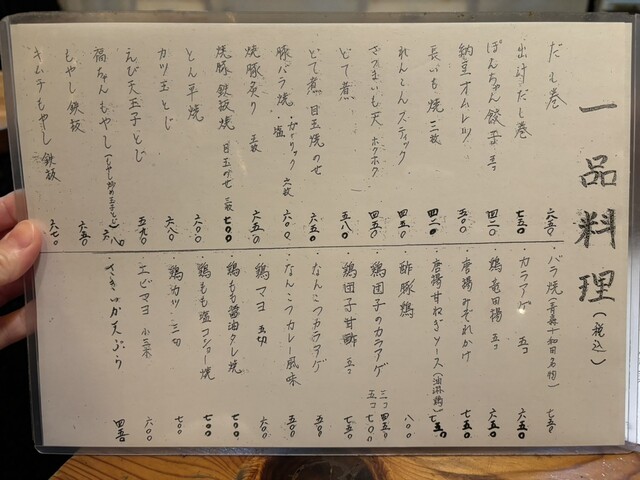 一品料理(税込)
だし巻 六三〇
出汁だし巻 七三〇
ぼんちゃん餃子 五コ 四二〇
納豆オムレツ 五〇〇
長いも焼 三枚 四二〇
れんこんスティック 四五〇
さつまいも天 ホクホク 四五〇
どて煮 五八〇
どて煮 目玉焼のせ 六五〇
豚バラ焼・ガーリック・塩 六枚 六〇〇
焼豚炙り 五枚 六五〇
焼豚鉄板焼 目玉のせ 二枚 七〇〇
とん平焼 六〇〇
カツ玉とじ 六八〇
えび天玉子とじ 五九〇
福ちゃんもやし(もやし炒め玉子とじ) 六八〇
もやし鉄板 六五〇
キムチもやし鉄板 六七〇
・バラ焼(青森十和田名物) 七五〇
・カラアゲ 五コ 六五〇
・鶏竜田揚 五コ 六五〇
・唐揚みぞれかけ 七五〇
・唐揚甘ねぎソース(油淋鶏) 七五〇
酢豚鶏 八〇〇
・鶏団子のカラアゲ 三コ 四五〇 五コ 七〇〇
・鶏団子甘酢 五コ 七五〇
・なんこつカラアゲ 五五〇
・なんこつカレー風味 五五〇
・鶏マヨ 五切 六〇〇
・鶏もも醤油タレ焼 七〇〇
・鶏もも塩コショー焼 七〇〇
鶏カツ・三切 七〇〇
・エビマヨ 小三米 六〇〇
・さきいか天ぷら 四五〇